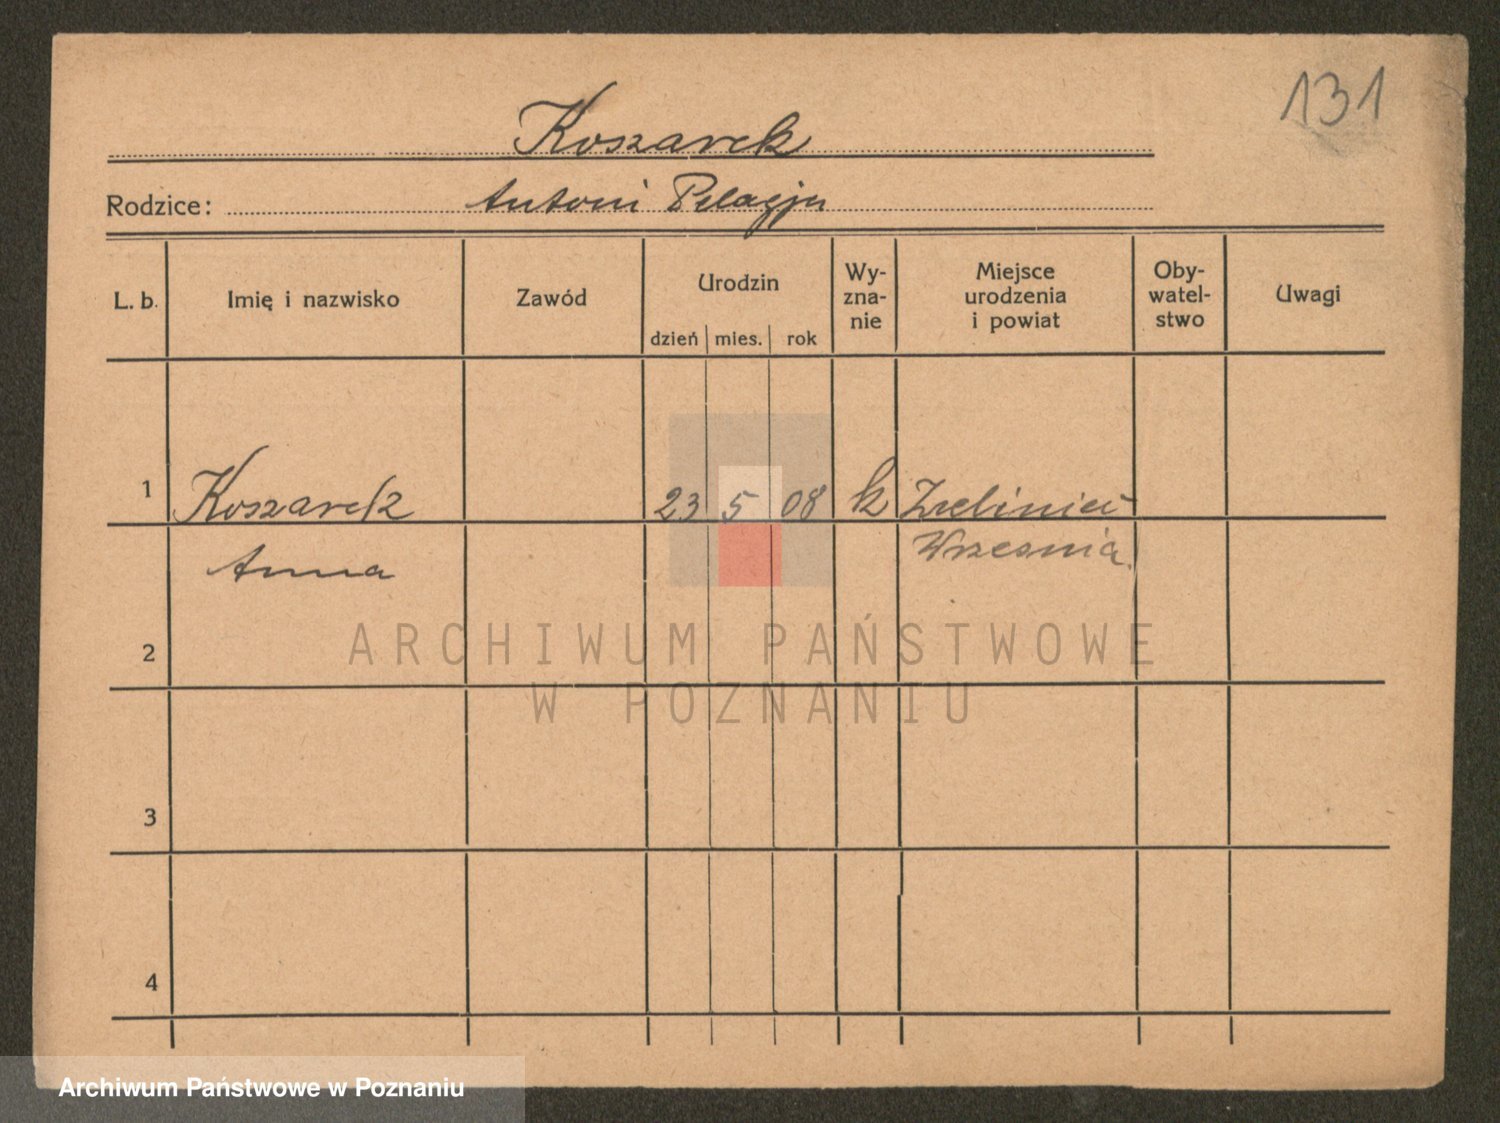 131
Koszarek
Rodzice: Antoni Pelagja
L. b. Imię i nazwisko Zawód Urodzin dzień mies. rok Wy-zna-nie Miejsce urodzenia i powiat Oby-watel-stwo Uwagi
1 Koszarek 23 5 08 k Zieliniec
Anna Wrzesnia
2
ARCHIWUM PAŃSTWOWE
W POZNANIU
3
4
Archiwum Państwowe w Poznaniu